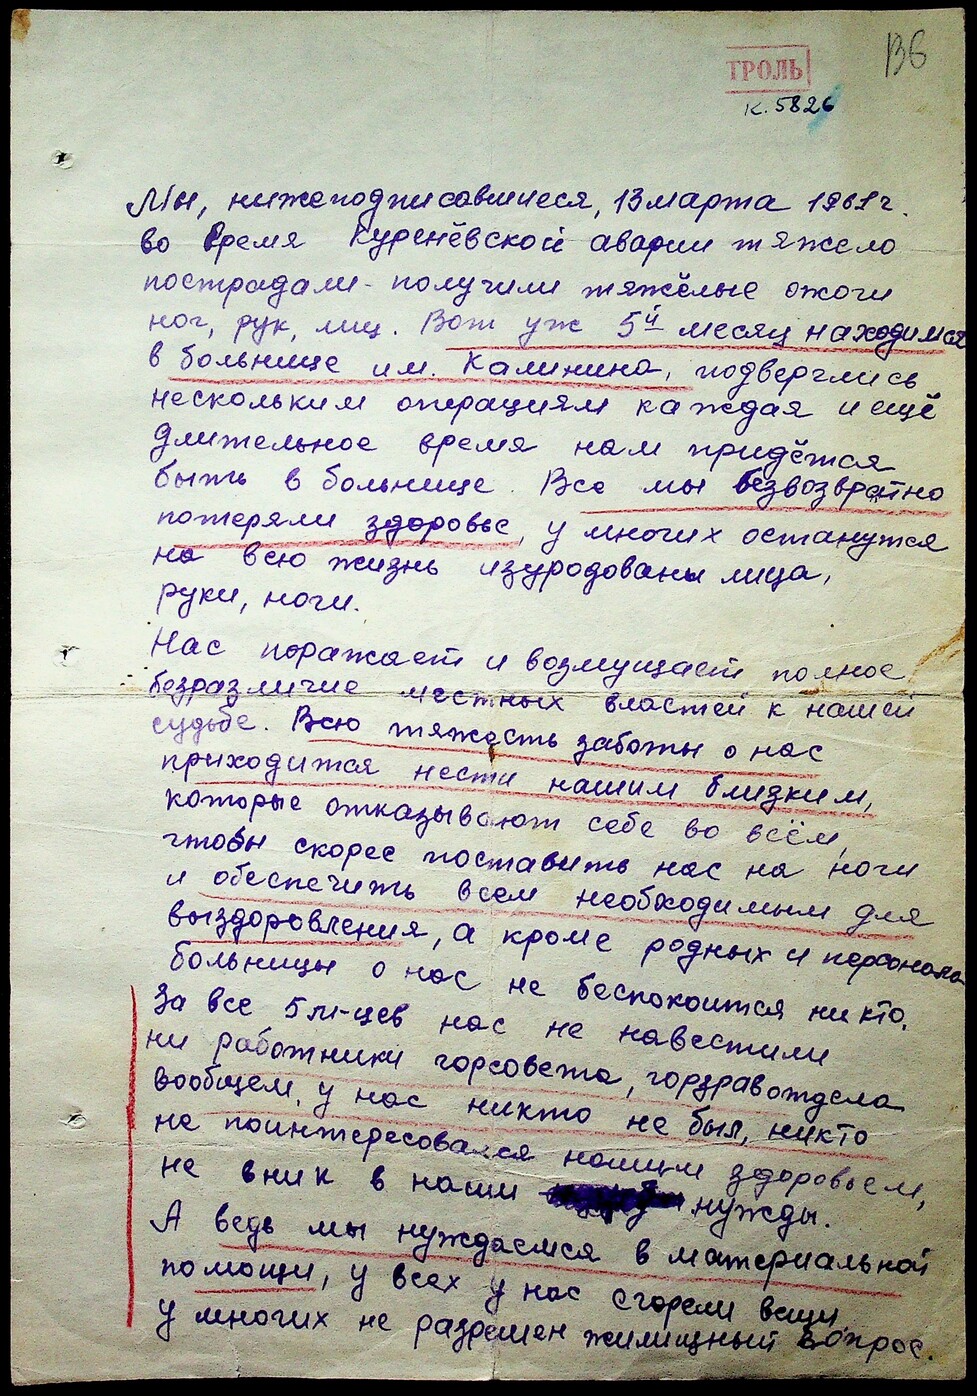 136
ТРОЛЬ
К. 5826
Мы, нижеподписавшиеся, 13 марта 1961 г.
во время Куренёвской аварии тяжело
пострадали - получили тяжёлые ожоги
ног, рук, лиц. Вот уж 5й месяц находимся
в больнице им. Калинина, подверглись
нескольким операциям каждая и ещё
длительное время нам придётся
быть в больнице. Все мы безвозвратно
потеряли здоровье, у многих останутся
на всю жизнь изуродованы лица,
руки, ноги.
Нас поражает и возмущает полное
безразличие местных властей к нашей
судьбе. Всю тяжесть заботы о нас
приходится нести нашим близким,
которые отказывают себе во всём,
чтобы скорее поставить нас на ноги
и обеспечить всем необходимым для
выздоровления, а кроме родных и персонала
больницы о нас не беспокоится никто.
За все 5 м-цев нас не навестили
ни работники горсовета, горздравотдела
вообщем, у нас никто не был, никто
не поинтересовался нашим здоровьем,
не вник в наши нужды.
А ведь мы нуждаемся в материальной
помощи, у всех у нас сгорели вещи
у многих не разрешен жилищный вопрос.